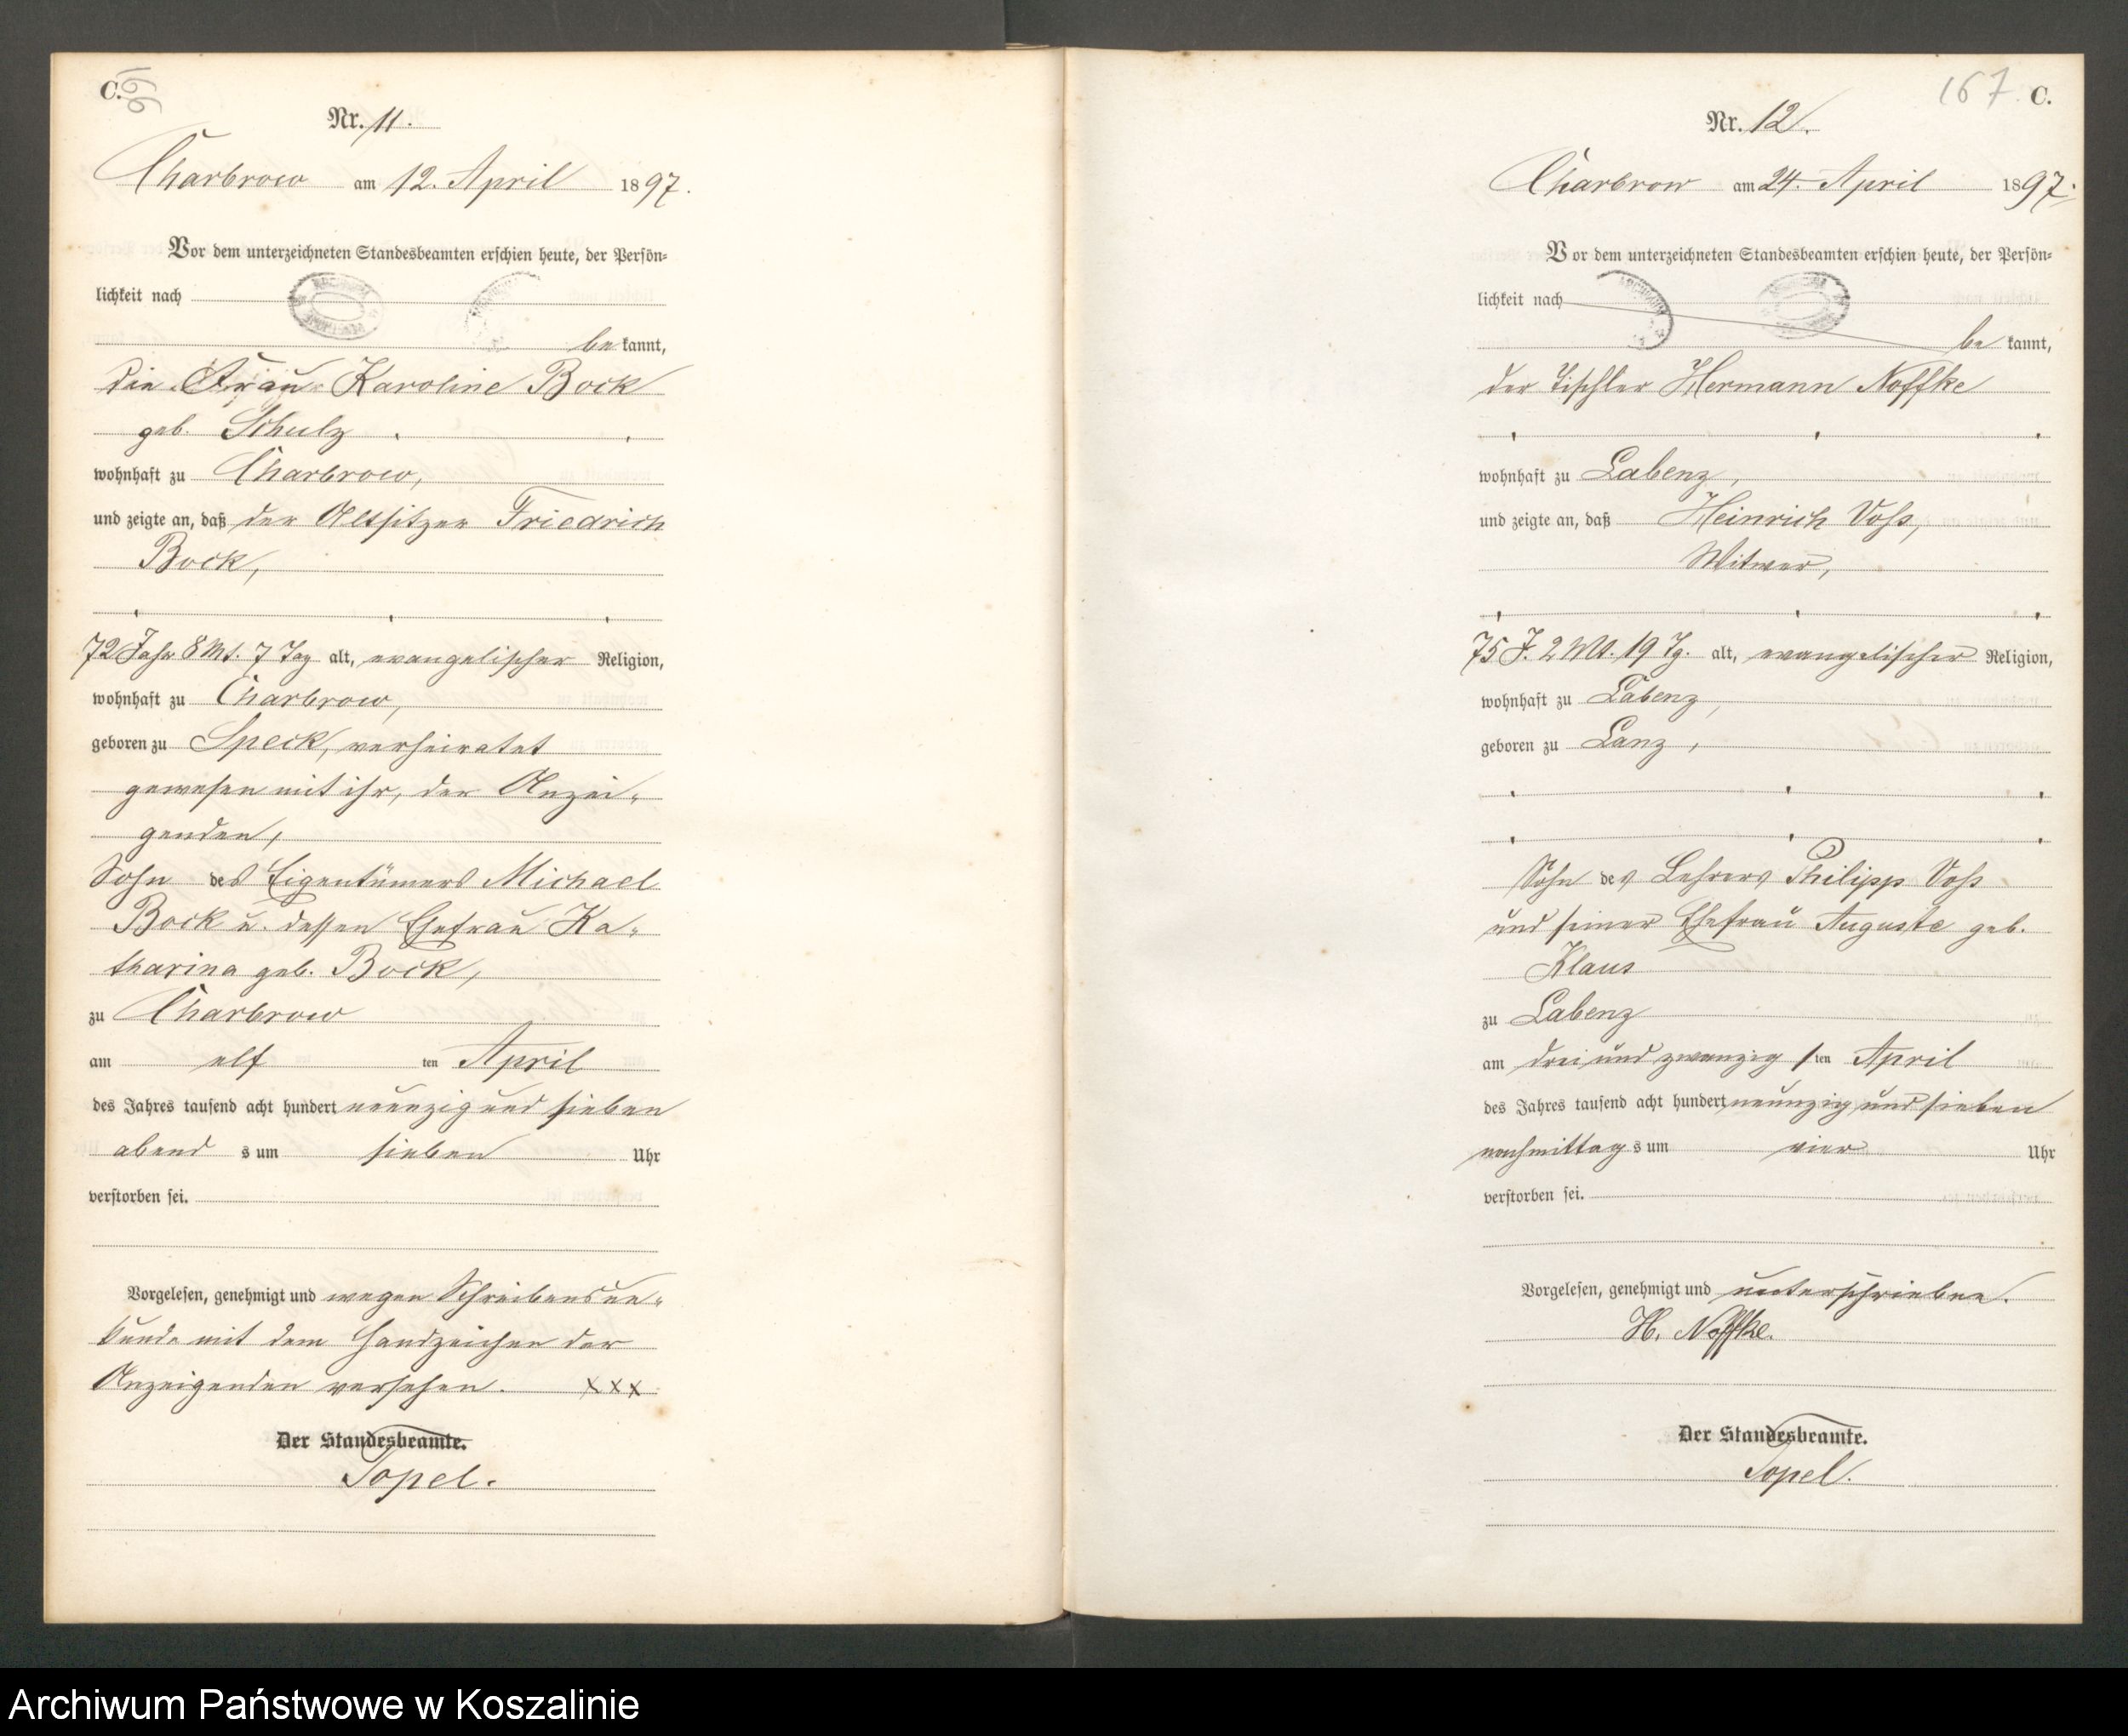 C.
166
Nr. 11.
Charbrow am 12. April 1897.
Vor dem unterzeichneten Standesbeamten erschien heute, der Persön-
lichkeit nach
be kannt,
die Frau Karoline Bock
geb. Schulz
wohnhaft zu Charbrow,
und zeigte an, daß der Altsitzer Friedrich
Bock,
72 Jahr 8 Mt. 7 Tag alt, evangelischer Religion,
wohnhaft zu Charbrow,
geboren zu Speck, verheiratet
gewesen mit ihr, der Anzei-
genden,
Sohn des Eigentümers Michael
Bock u. dessen Ehefrau Ka-
tharina geb. Bock,
zu Charbrow
am elf ten April
des Jahres tausend acht hundert neunzig und sieben
abend s um sieben Uhr
verstorben sei.
Vorgelesen, genehmigt und wegen Schreibensun-
kunde mit dem Handzeichen der
Anzeigenden versehen. XXX
Der Standesbeamte.
Topel.
167 C.
Nr. 12.
Charbrow am 24. April 1897.
Vor dem unterzeichneten Standesbeamten erschien heute, der Persön-
lichkeit nach
be kannt,
der Tischler Hermann Noffke
wohnhaft zu Labenz,
und zeigte an, daß Heinrich Voß,
Witwer,
75 J. 2 Mt. 19 Tg. alt, evangelischer Religion,
wohnhaft zu Labenz,
geboren zu Lanz,
Sohn des Lehrers Philipp Voß
und seiner Ehefrau Auguste geb.
Klaus
zu Labenz
am drei und zwanzig sten April
des Jahres tausend acht hundert neunzig und sieben
nachmittag s um vier Uhr
verstorben sei.
Vorgelesen, genehmigt und unterschrieben.
H. Noffke.
Der Standesbeamte.
Topel.
Archiwum Państwowe w Koszalinie